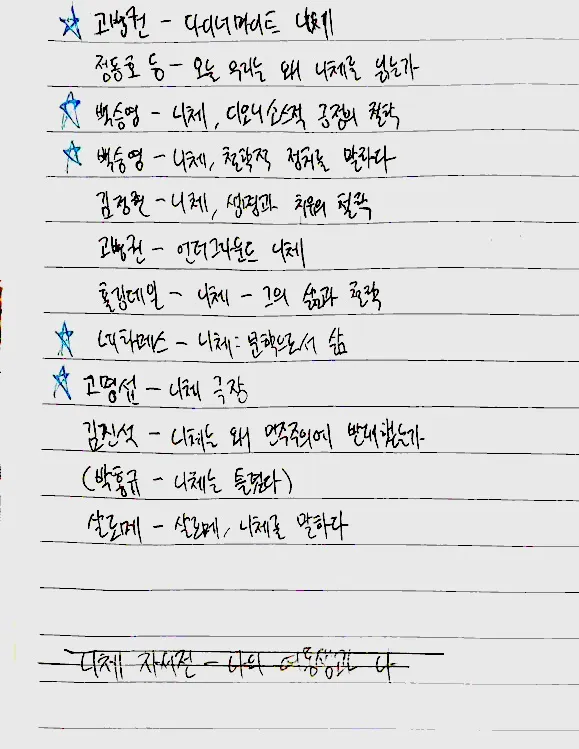 고병권 - 다이너마이트 니체
정동호 등 - 오늘 우리는 왜 니체를 읽는가
백승영 - 니체, 디오니소스적 긍정의 철학
백승영 - 니체, 철학적 정치를 말하다
김정현 - 니체, 생명과 치유의 철학
고병권 - 언더그라운드 니체
홀링데일 - 니체 - 그의 삶과 철학
네하메스 - 니체: 문학으로서 삶
고명섭 - 니체 극장
김진석 - 니체는 왜 민주주의에 반대했는가
(박홍규 - 니체는 틀렸다)
살로메 - 살로메, 니체를 말하다
니체 자서전 - 나의 여동생과 나